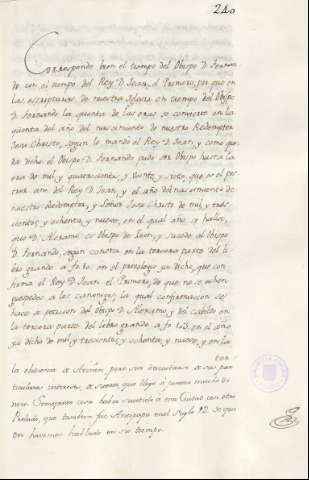 240
Corresponde bien el tiempo del Obispo D. Fernan
do con el tiempo del Rey D. Juan, el Primero, por que en
las escripturas de nuestra Iglesia en tiempo del Obispo
D. Fernando la quenta de las eras se convierte en la
quenta del año del nascimiento de nuestro Redemptor
Jesu Christo, segun lo mandó el Rey D. Juan, y como que
da dicho el Obispo D. Fernando pudo ser Obispo hasta la
era de mil, y quatrocientos, y veinte, y siete, que es el pos
trer año del Rey D. Juan, y el año del nascimiento de
nuestro Redemptor, y Señor Jesu Christo de mil, y tres
cientos, y ochenta, y nueve, en el qual año se halla,
que D. Aleramo es Obispo de Leon, y sucede al Obispo
D. Fernando, segun consta en la tercera parte del li
bro grande a fo. en el privilegio ya dicho, que con
firma el Rey D. Juan el Primero, de que no se echen
guespedes a los canonigos, la qual confirmacion se
hace a peticion del Obispo D. Aleramo, y del cabildo en
la tercera parte del libro grande a fo. en el año
ya dicho de mil, y trescientos, y ochenta, y nueve, y en la
con
la obediencia de Aviñon para ser
de
nero. Semejante cosa habia sucedido a esta Ciudad con otro
Prelado, que tambien fue Arzobispo en el siglo 12 de que
ya havemos hablado en su tiempo.